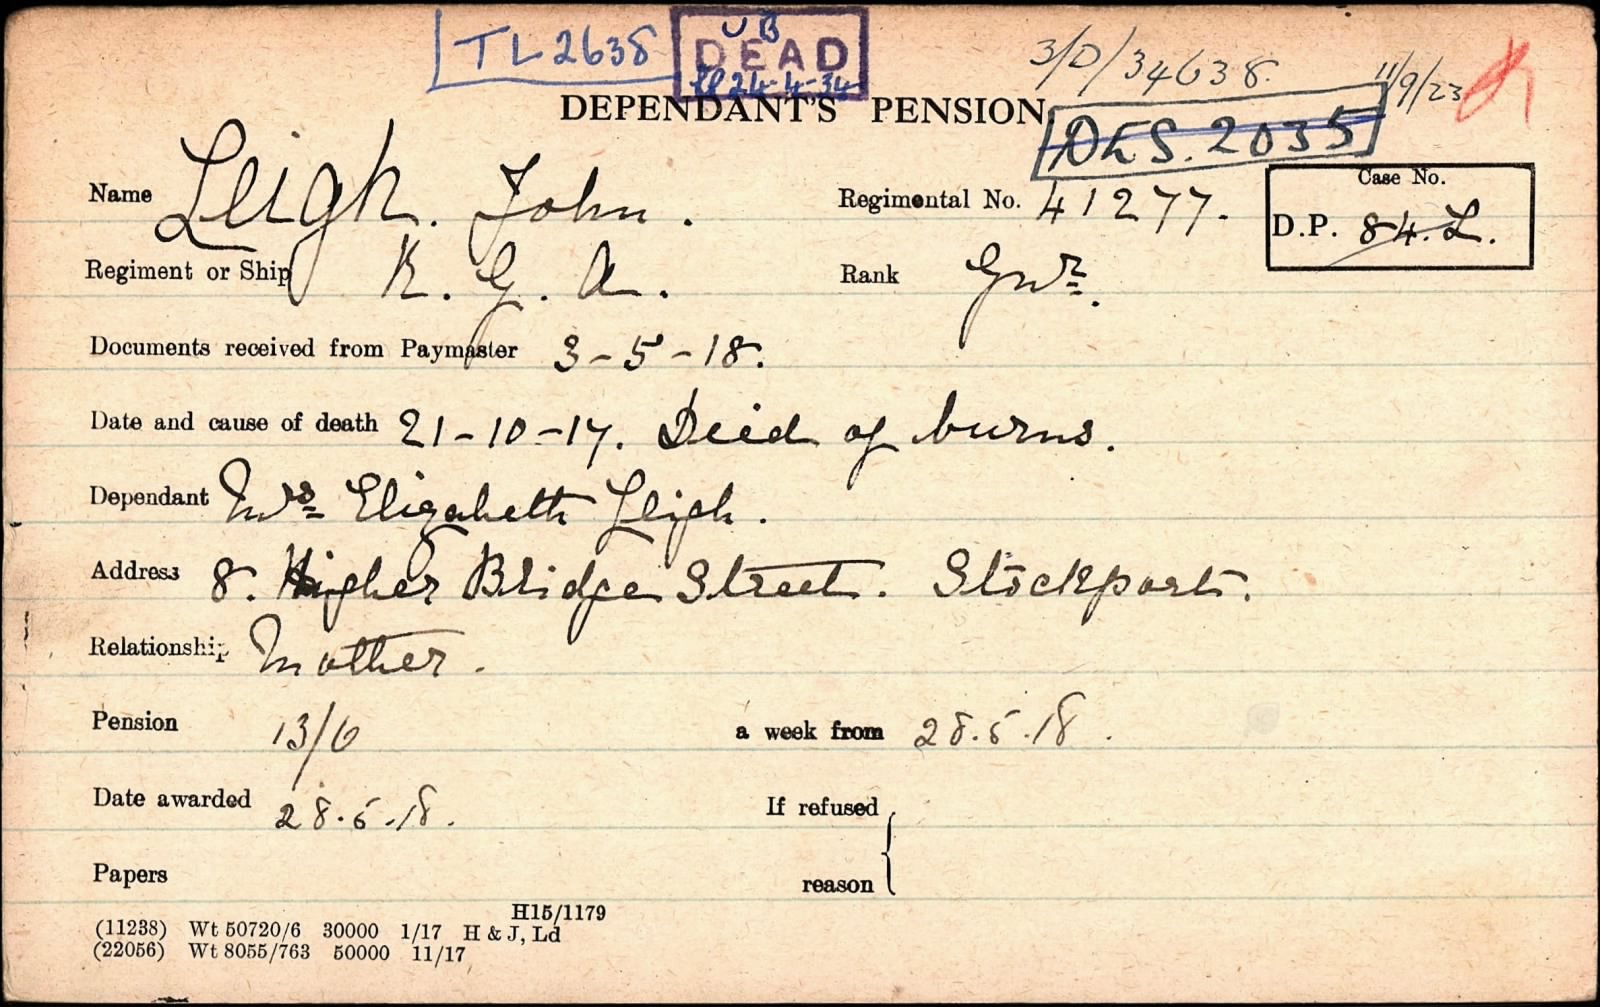 TL2638
UB
DEAD
24-4-34
3/D/34638
11/9/23
DEPENDANT'S PENSION
DES. 2035
Name Leigh. John. Regimental No. 41277.
Case No.
D.P. 84.L.
Regiment or Ship R. G. A. Rank Gnr.
Documents received from Paymaster 3-5-18.
Date and cause of death 21-10-17. Deid of burns.
Dependant Mrs Elizabeth Leigh.
Address 8. Higher Bridge Street. Stockport.
Relationship Mother.
Pension 13/6 a week from 28.5.18.
Date awarded 28.5.18. If refused
Papers reason
H15/1179
(11238) Wt 50720/6 30000 1/17 H & J, Ld
(22056) Wt 8055/763 50000 11/17